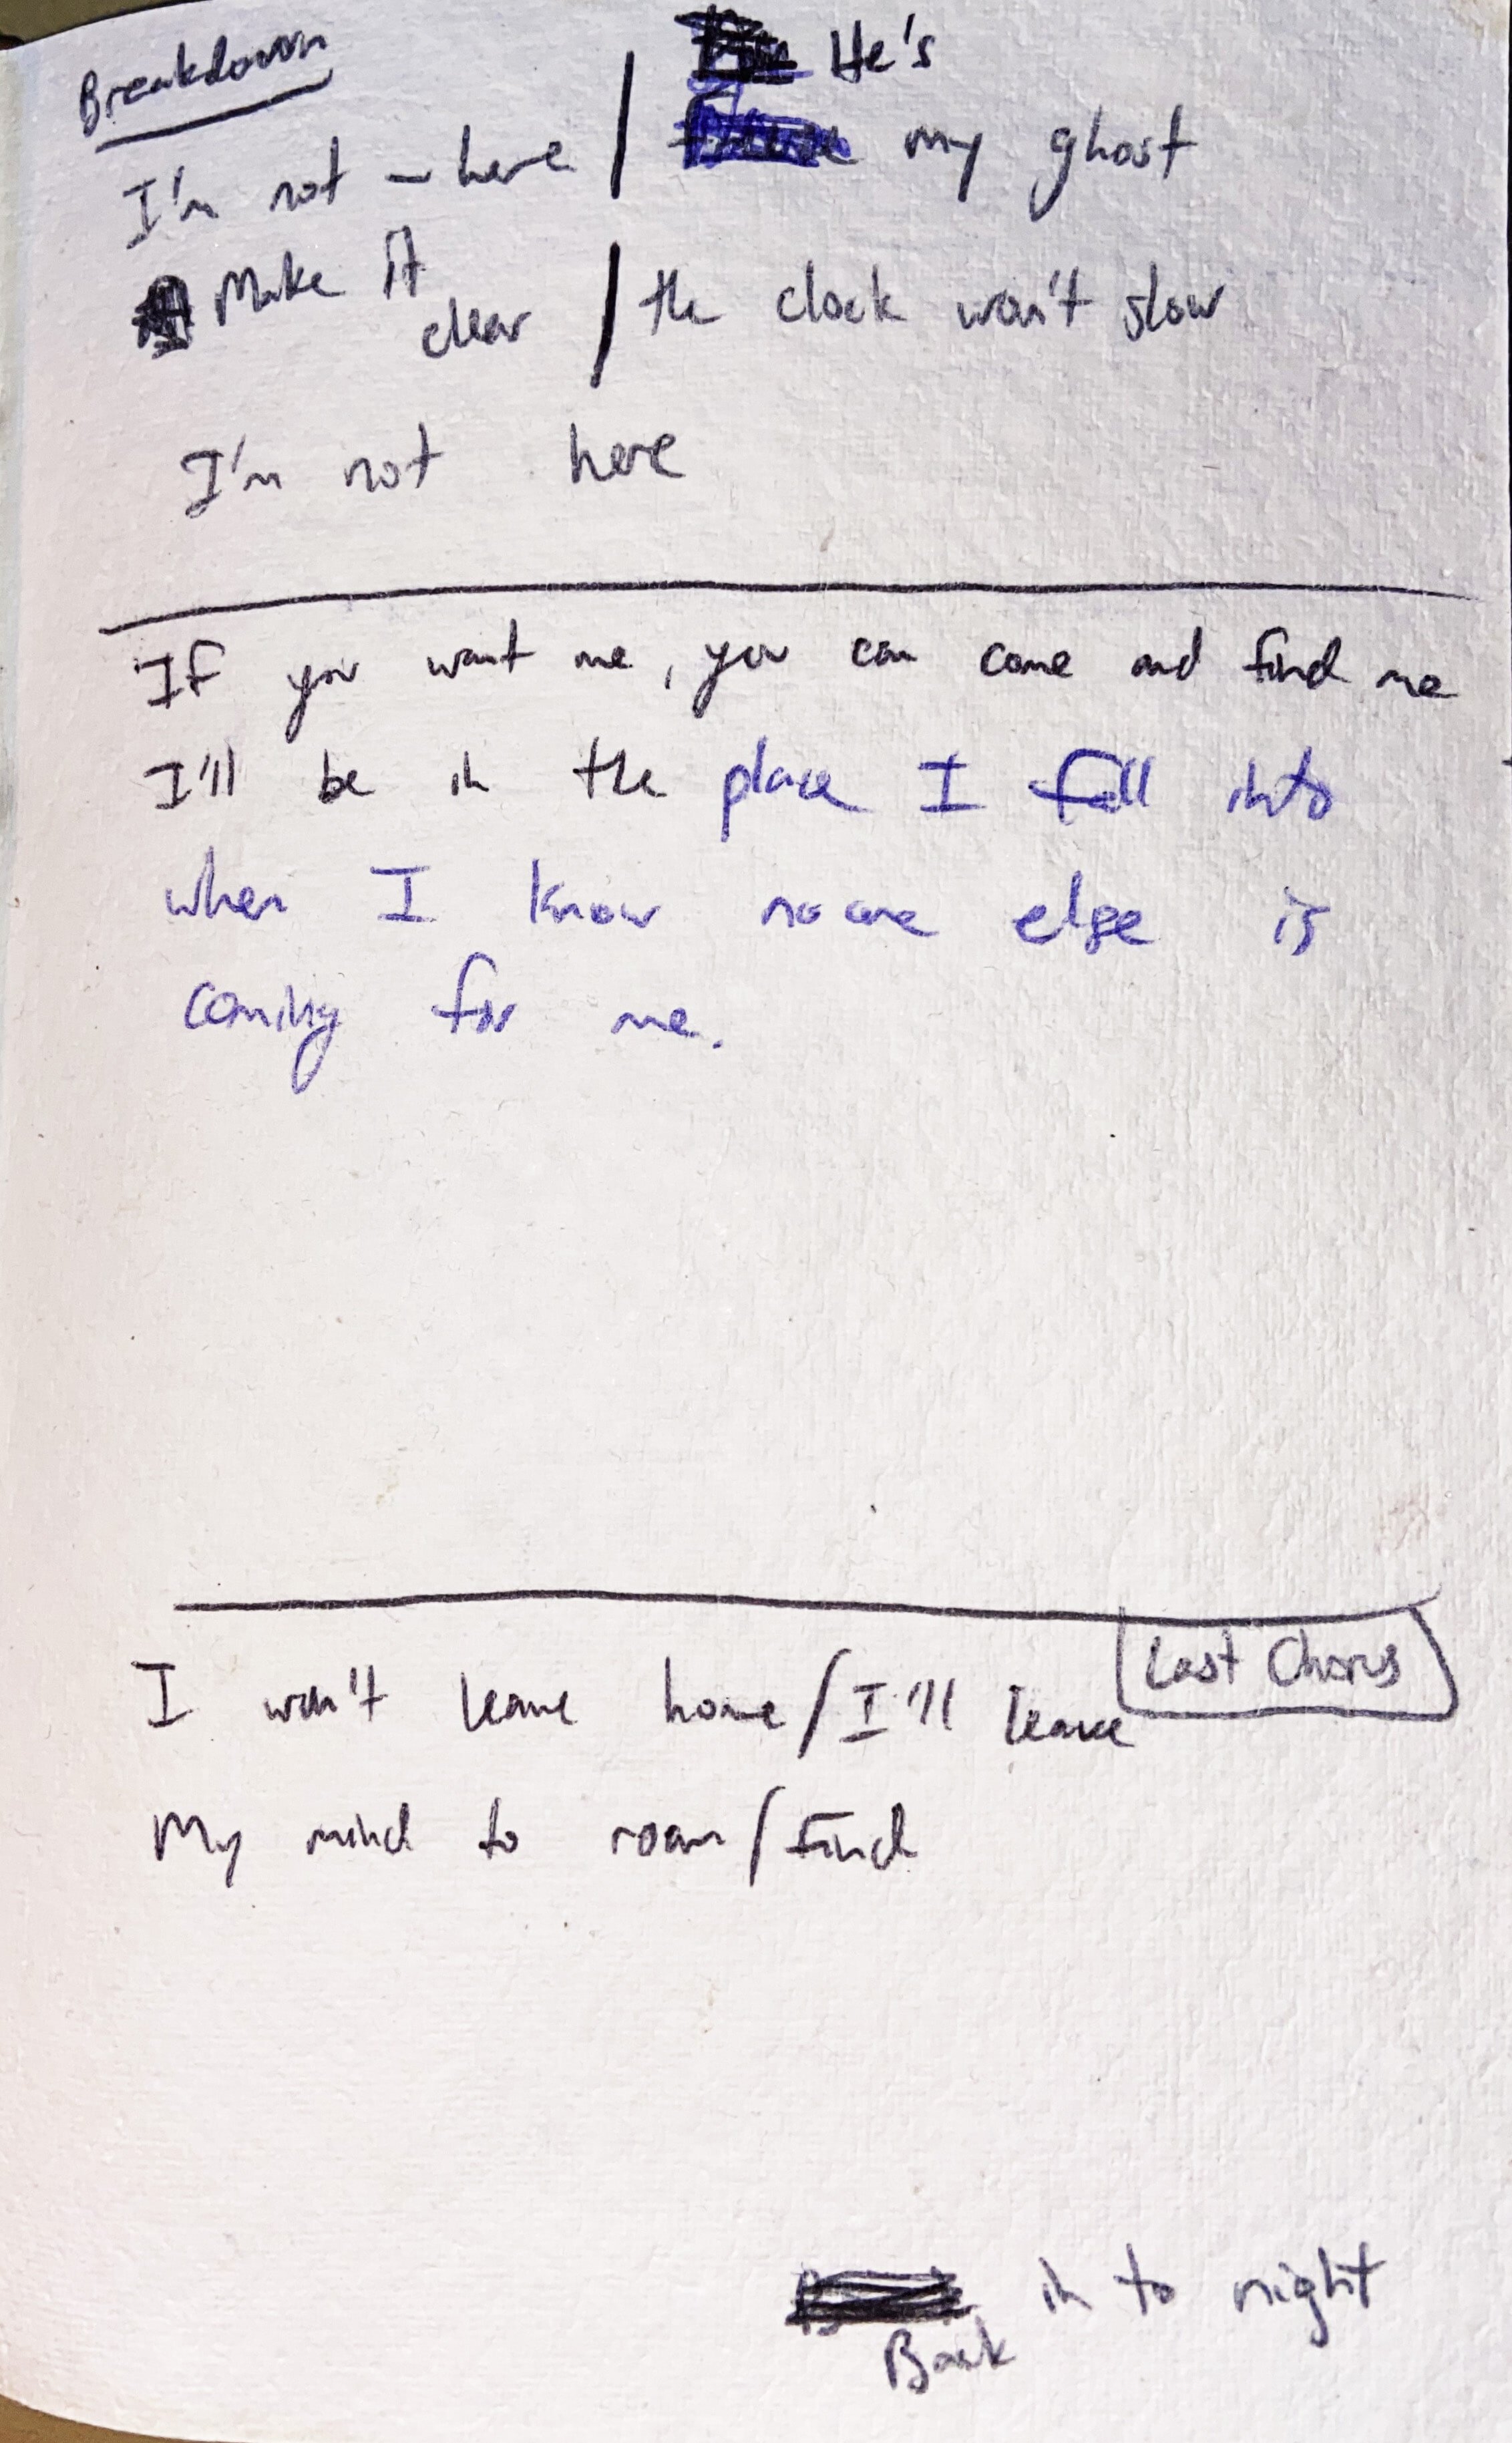 Breakdown
He's
I'm not - here / my ghost
Make it clear / the clock won't slow
I'm not here
If you want me, you can come and find me
I'll be in the place I fall into
when I know no one else is
coming for me.
Last Chorus
I won't leave home / I'll leave
My mind to roam / Find
in to night
Back